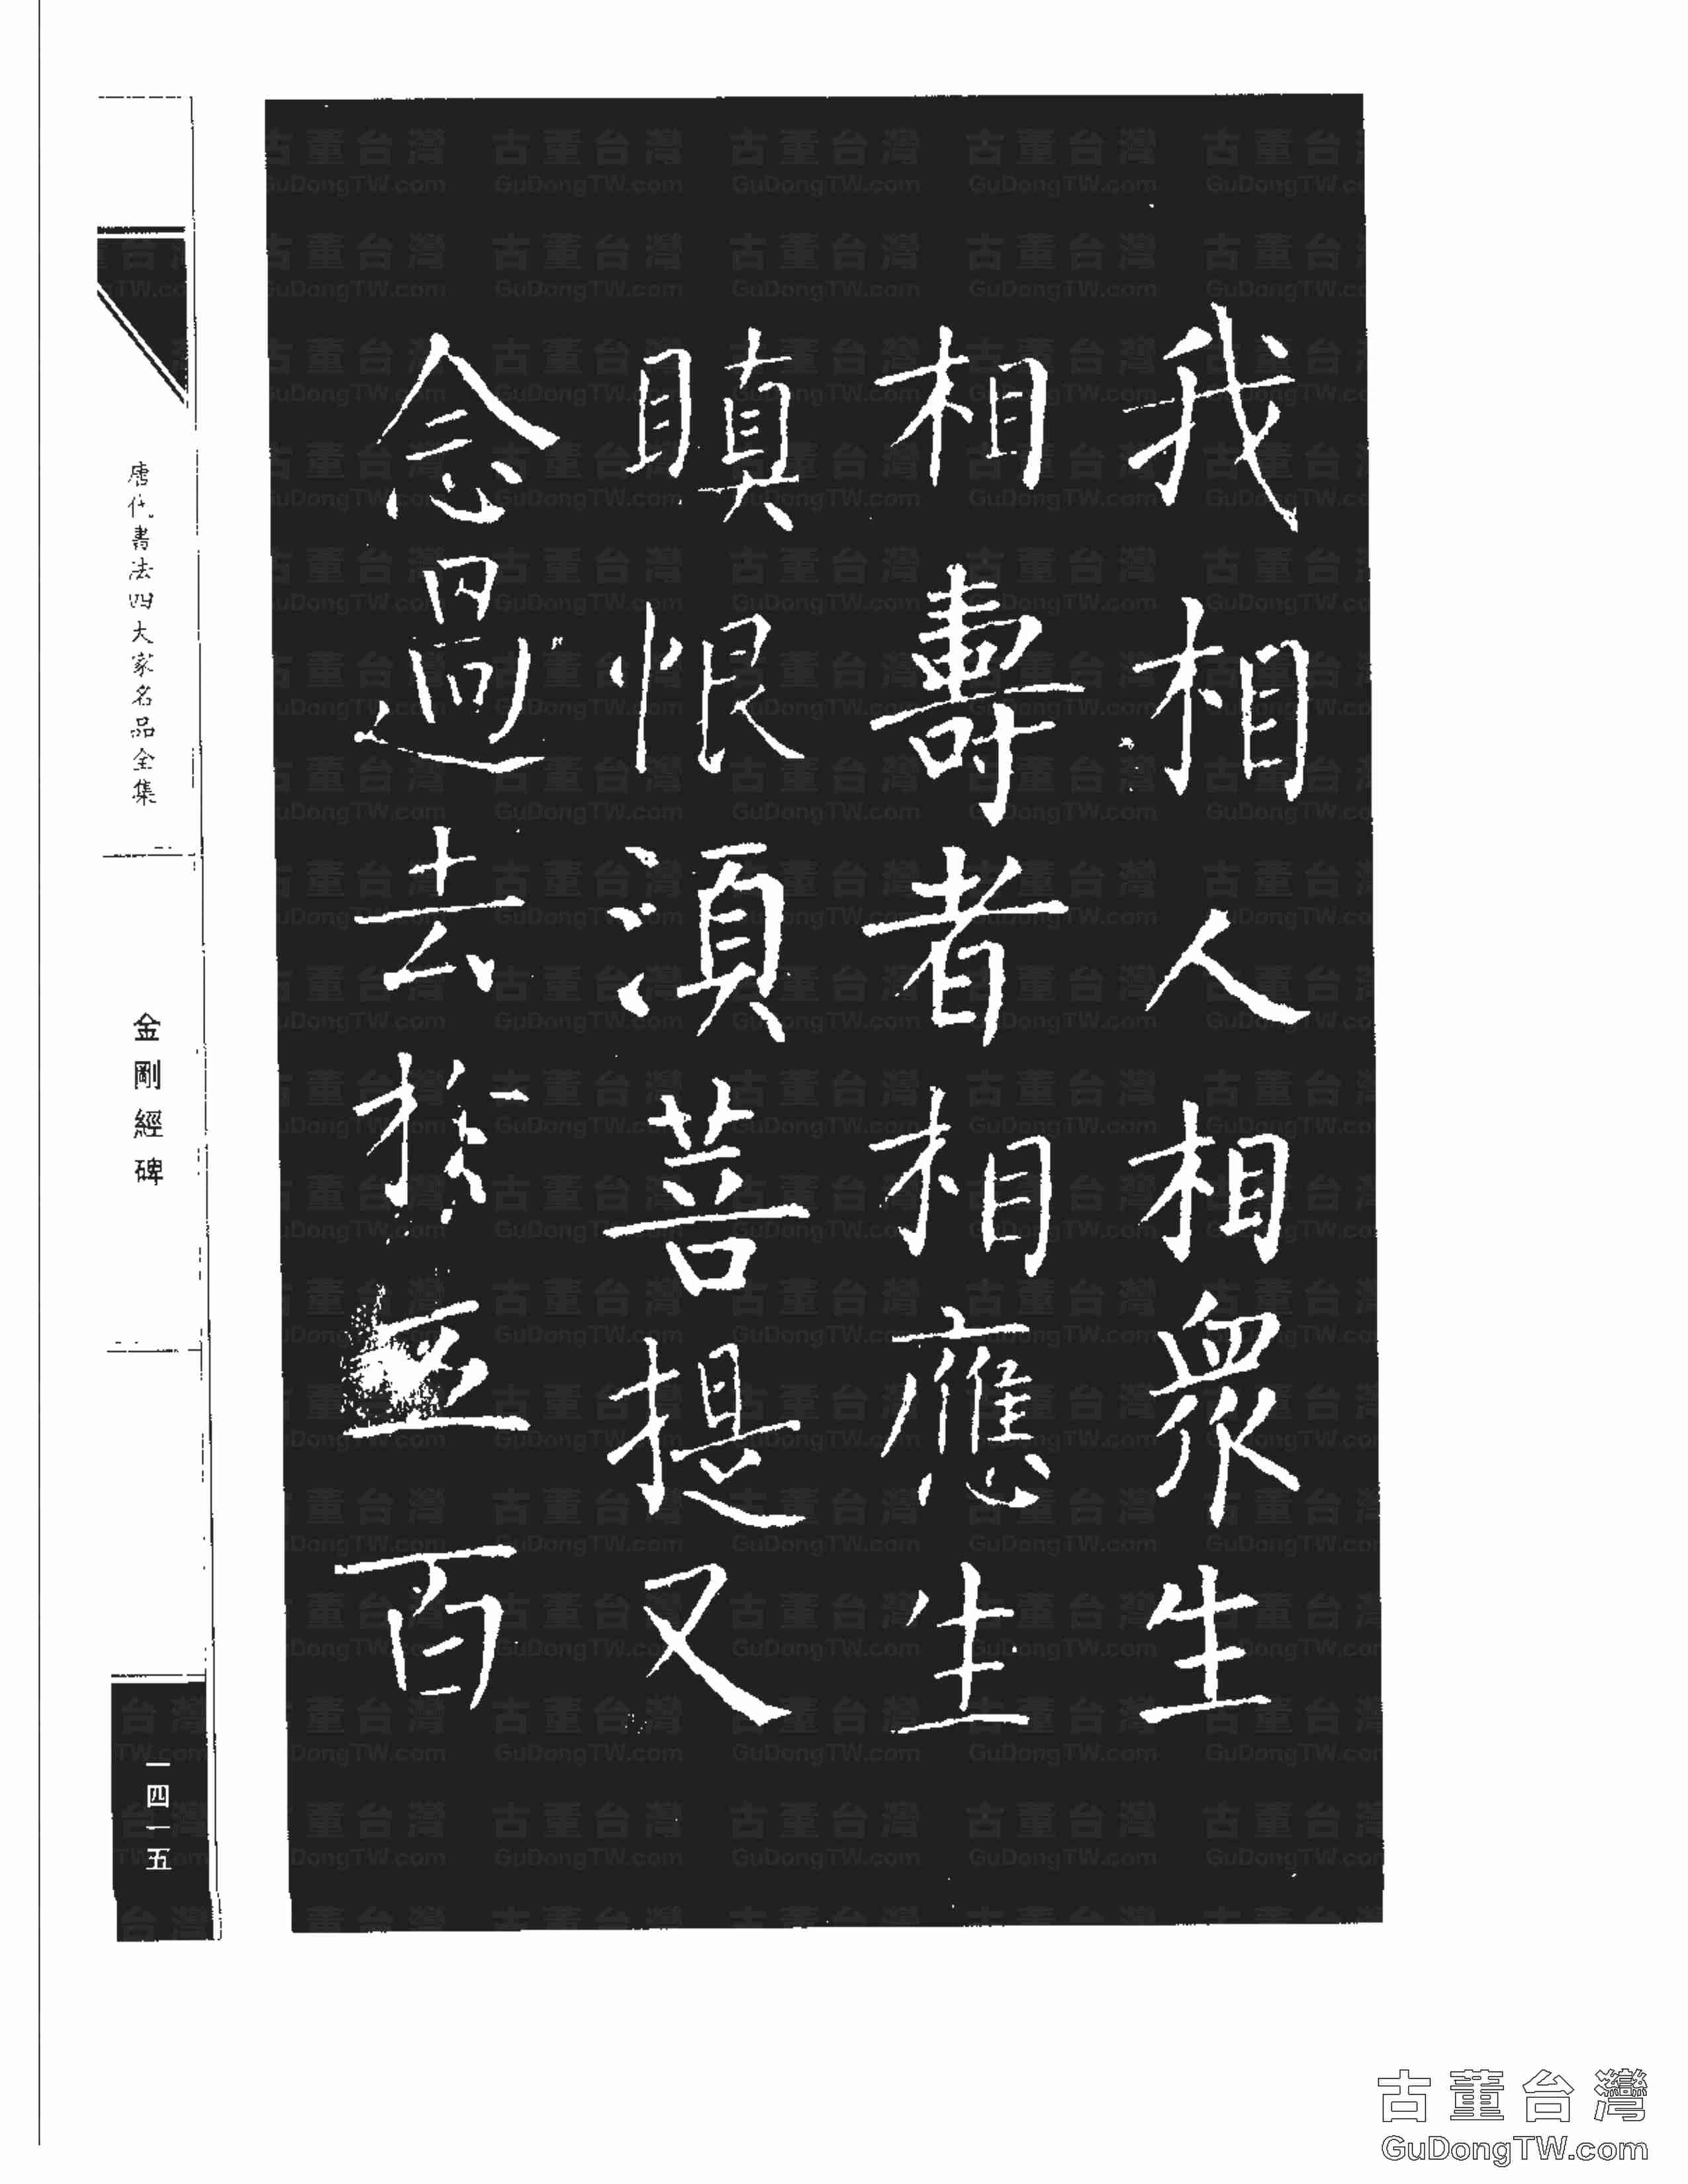 我相人相衆生
相壽者相應生
瞋恨湏菩提又
念過去於五百
唐代書法四大家名品全集
金剛經碑
一四一五
古董台灣
GuDongTW.com